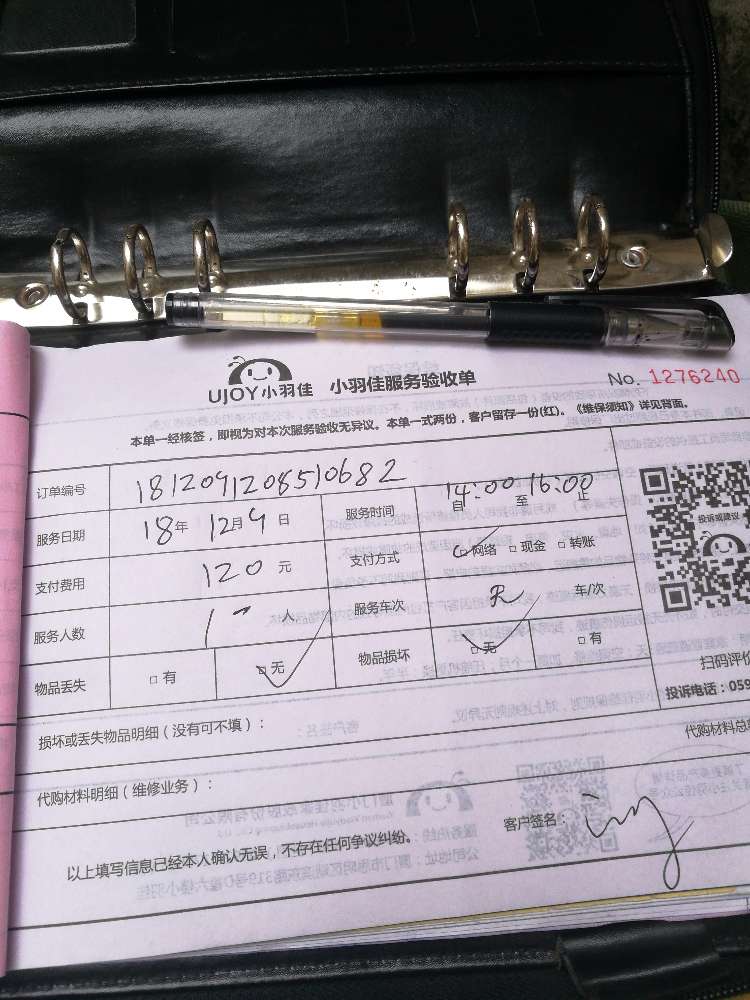 UJOY小羽佳 小羽佳服务验收单 No. 1276240
本单一经核签，即视为对本次服务验收无异议。本单一式两份，客户留存一份(红)。《维保须知》详见背面。
订单编号 1812091208510682
服务日期 18年 12月9日 服务时间 14:00自 至 16:00止
支付费用 120元 支付方式 □网络 □现金 □转账
服务人数 1人 服务车次 车/次
物品丢失 □有 □无 物品损坏 □无 □有
损坏或丢失物品明细（没有可不填）：
代购材料明细（维修业务）： 代购材料总
以上填写信息已经本人确认无误，不存在任何争议纠纷。 客户签名：
投诉或建议
扫码评价
投诉电话：059